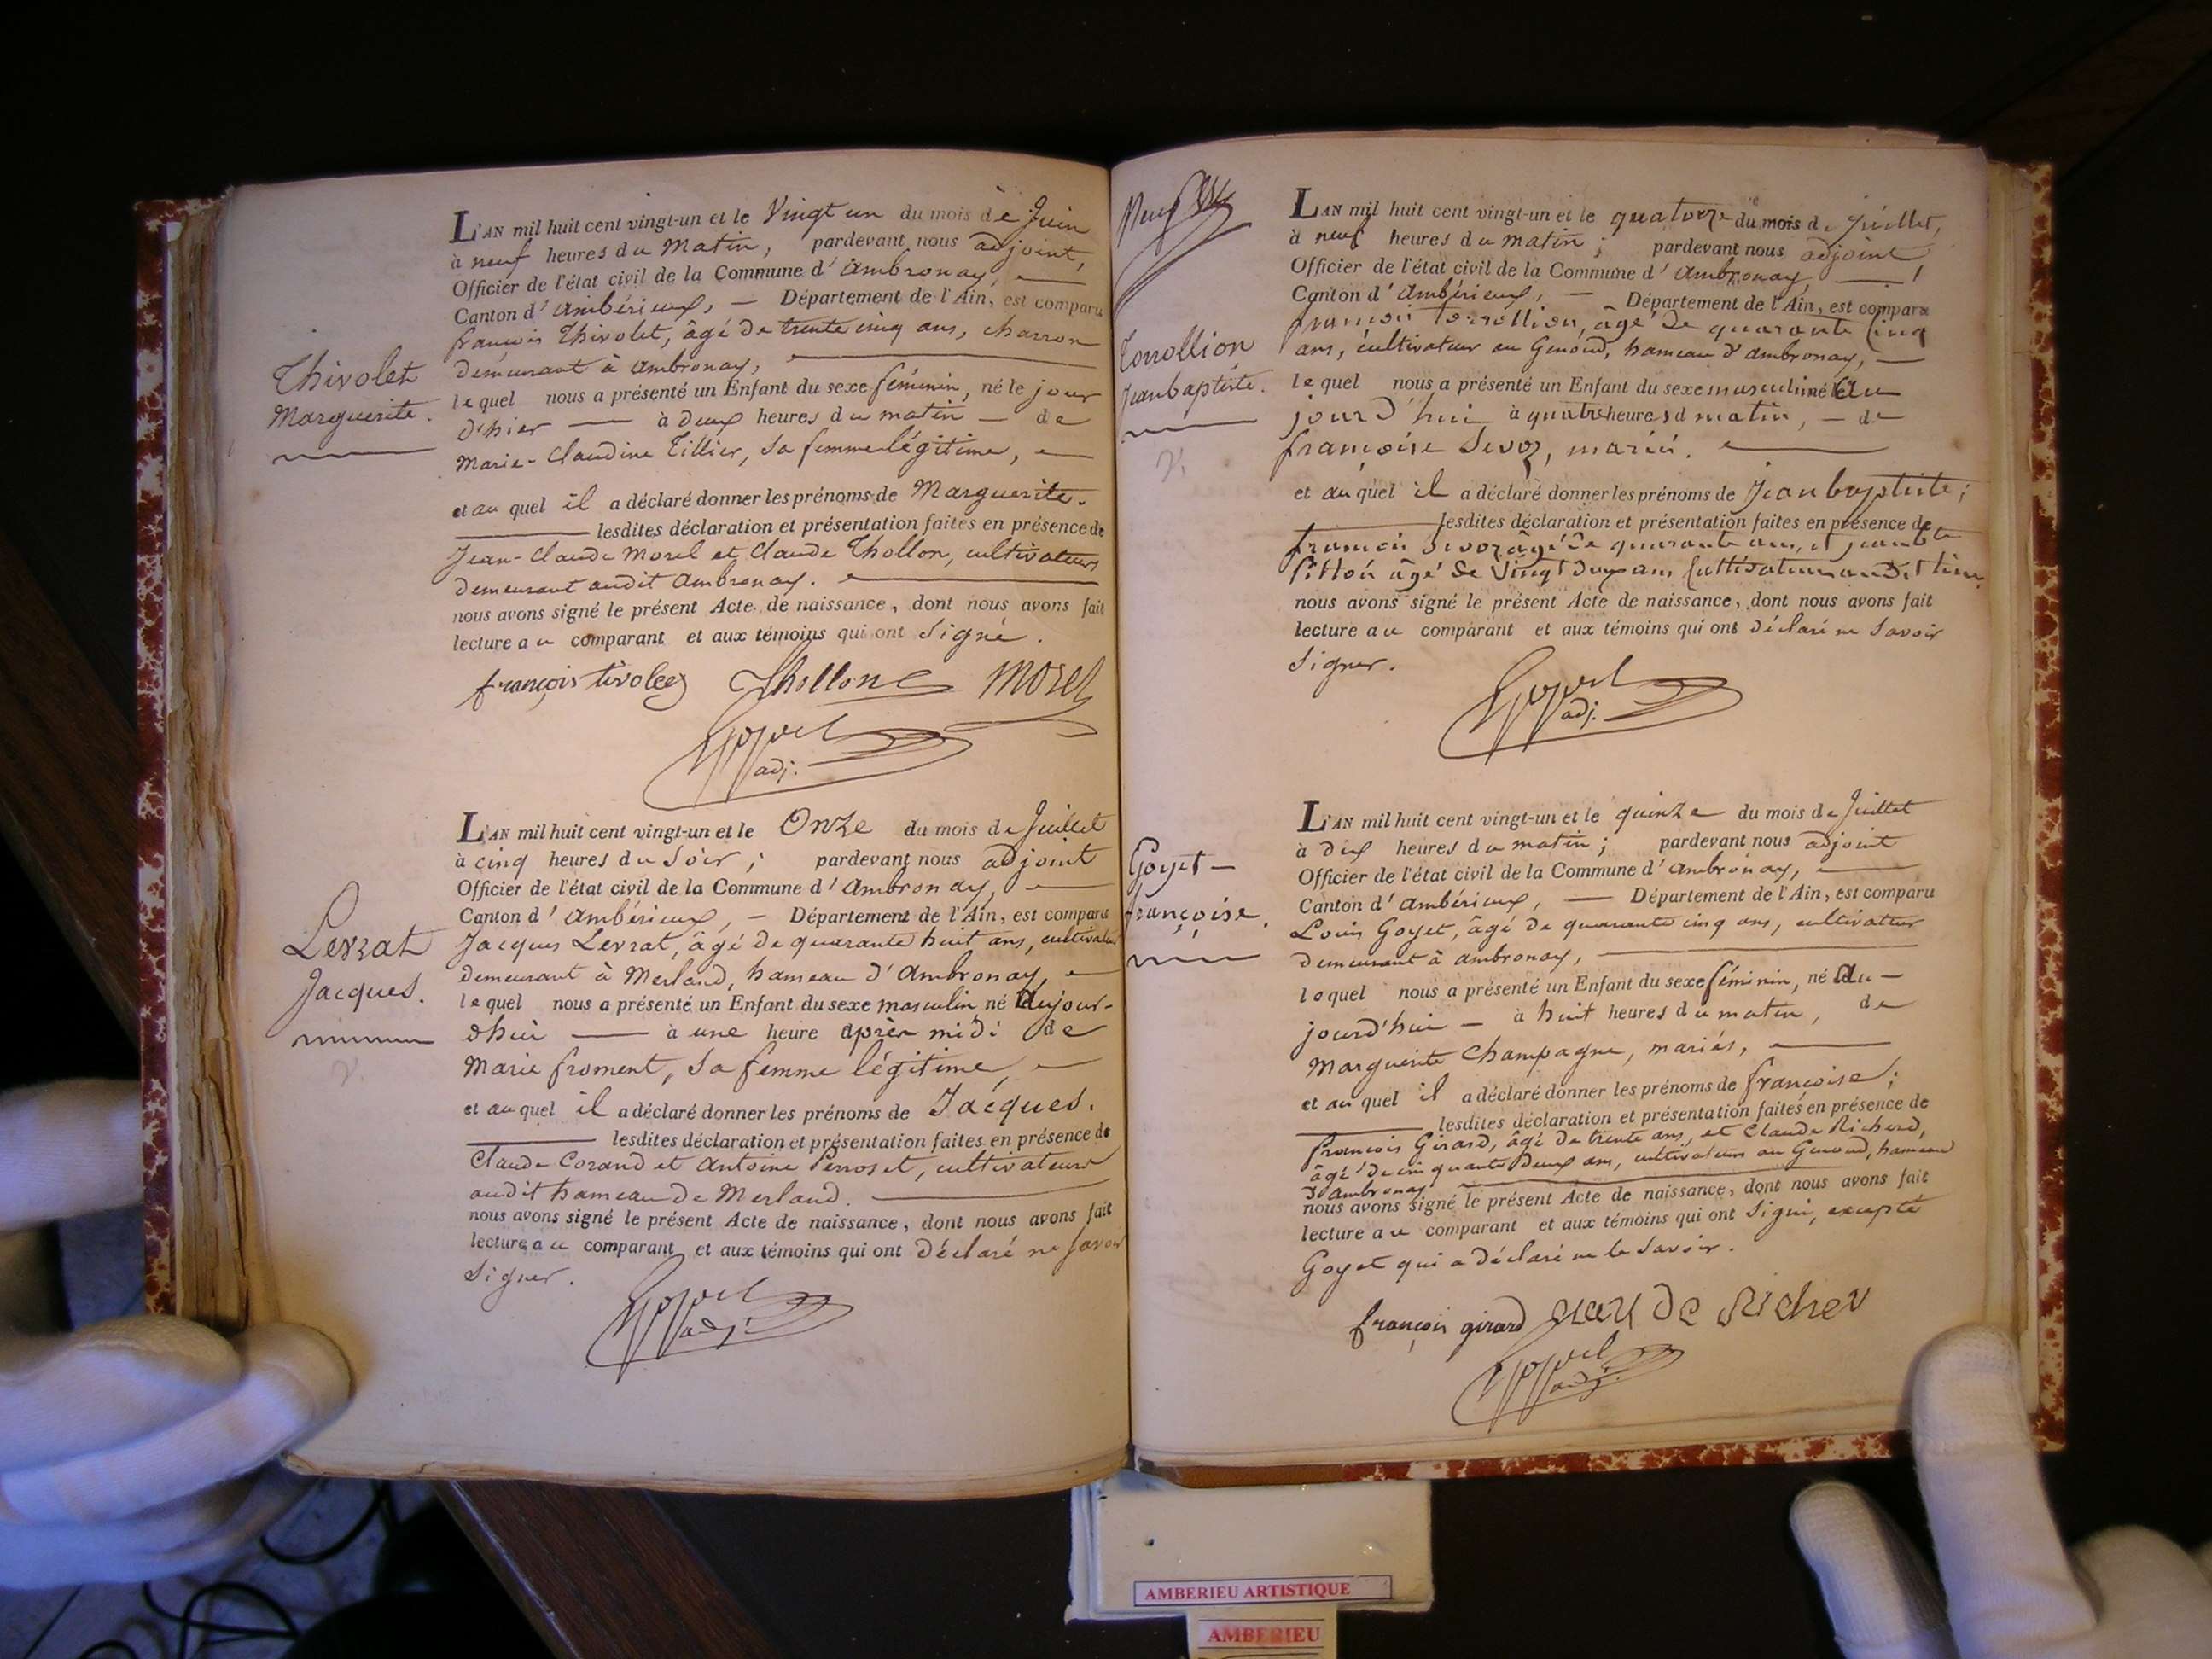 L'AN mil huit cent vingt-un et le Vingt un du mois de Juin
à neuf heures du Matin, pardevant nous adjoint,
Officier de l'état civil de la Commune d'ambronay,
Canton d'ambérieux, — Département de l'Ain, est comparu
françois Thivolet, âgé de trente cinq ans, charron
demeurant à ambronay,
Thivolet
Marguerite.
lequel nous a présenté un Enfant du sexe féminin, né le jour
d'hier — à deux heures du matin — de
Marie-Claudine Tillier, sa femme légitime,
et au quel il a déclaré donner les prénoms de Marguerite.
lesdites déclaration et présentation faites en présence de
Jean-Claude Morel et Claude Thollon, cultivateurs
demeurant audit ambronay.
nous avons signé le présent Acte de naissance, dont nous avons fait
lecture au comparant et aux témoins qui ont signé.
françois tivoley Thollone Morel
adj.
L'AN mil huit cent vingt-un et le Onze du mois de Juillet
à cinq heures du soir; pardevant nous adjoint
Officier de l'état civil de la Commune d'ambronay,
Canton d'ambérieux, — Département de l'Ain, est comparu
Levrat
Jacques.
Jacques Levrat, âgé de quarante huit ans, cultivateur
demeurant à Merland, hameau d'ambronay,
lequel nous a présenté un Enfant du sexe masculin né aujour-
dhui — à une heure après midi de
Marie froment, sa femme légitime,
et au quel il a déclaré donner les prénoms de Jacques.
lesdites déclaration et présentation faites en présence de
Claude Corand et Antoine Perroset, cultivateurs
audit hameau de Merland.
nous avons signé le présent Acte de naissance, dont nous avons fait
lecture au comparant et aux témoins qui ont déclaré ne savoir
signer.
adj.
L'AN mil huit cent vingt-un et le quatorze du mois de Juillet,
à neuf heures du matin; pardevant nous adjoint
Officier de l'état civil de la Commune d'ambronay,
Canton d'ambérieux, — Département de l'Ain, est comparu
françois Torrollion, âgé de quarante cinq
ans, cultivateur au Genoud, hameau d'ambronay,
Torrollion
Jean baptiste.
lequel nous a présenté un Enfant du sexe masculin né au
jourd'hui à quatre heures d matin, — de
françoise Sevoz, mariés.
et au quel il a déclaré donner les prénoms de Jean baptiste;
lesdites déclaration et présentation faites en présence de
françois Sevoz âgé de quarante ans, et
âgé de Vingt deux ans cultivateurs audit lieu
nous avons signé le présent Acte de naissance, dont nous avons fait
lecture au comparant et aux témoins qui ont déclaré ne savoir
signer.
adj.
L'AN mil huit cent vingt-un et le quinze du mois de Juillet
à dix heures du matin; pardevant nous adjoint
Officier de l'état civil de la Commune d'ambronay,
Canton d'ambérieux, — Département de l'Ain, est comparu
Goyet
françoise.
Louis Goyet, âgé de quarante cinq ans, cultivateur
demeurant à ambronay,
lequel nous a présenté un Enfant du sexe féminin, né au
jourd'hui — à huit heures du matin, de
Marguerite Champagne, mariés,
et au quel il a déclaré donner les prénoms de françoise;
lesdites déclaration et présentation faites en présence de
François Girard, âgé de trente ans, et Claude Richerd,
âgé de cinquante deux ans, cultivateurs au Genoud, hameau
d'ambronay.
nous avons signé le présent Acte de naissance, dont nous avons fait
lecture au comparant et aux témoins qui ont signé, excepté
Goyet qui a déclaré ne le savoir.
françois girard
adj.
AMBERIEU ARTISTIQUE
AMBERIEU